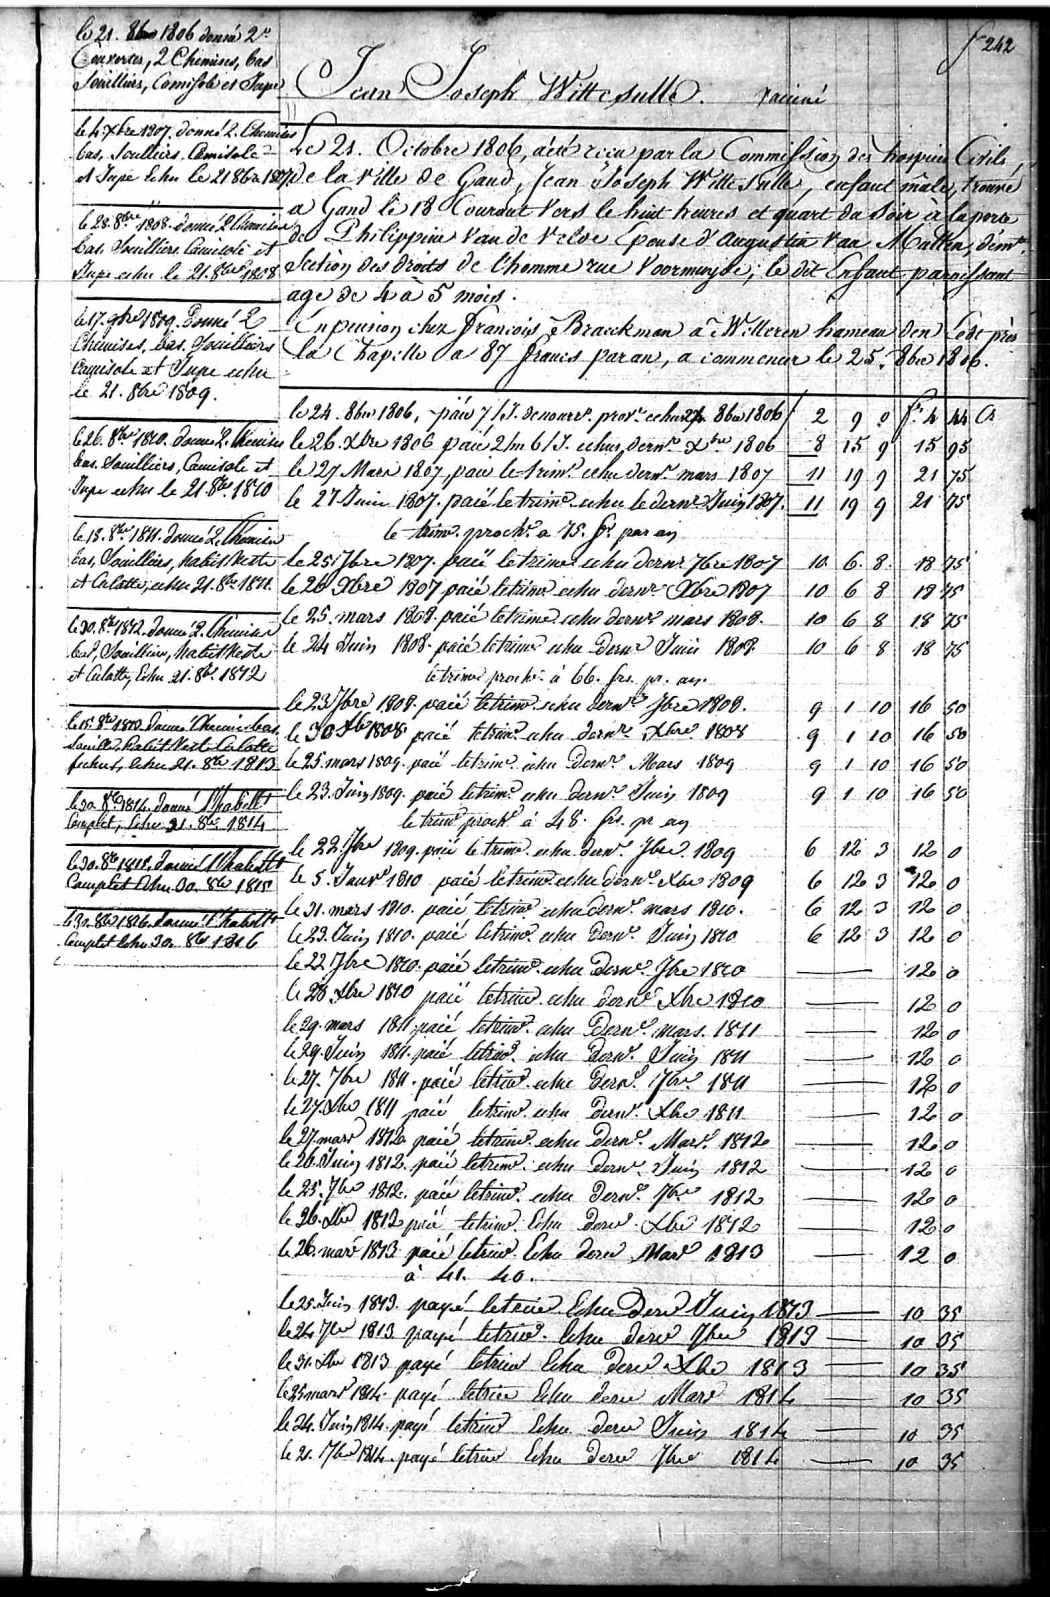 fo 242
le 21. 8bre 1806 donné 2
Couvertes, 2 Chemises, bas
Souilliers, Camisole et Jupe
le 4 Xbre 1807. donné 2. Chemises
bas, Soulliers. Camisole
et Jupe Echu le 21 8bre 1807.
le 28. 8bre 1808. donné 2 Chemises
bas. Souilliers Camisole et
Jupe echu le 21. 8bre 1808
le 17. 9bre 1809. Donné 2
Chemises, bas, Souilliers
Camisole et Jupe echu
le 21. 8bre 1809.
le 26. 8bre 1810. donné 2. Chemises
bas. Souilliers, Camisole et
Jupe echu le 21. 8bre 1810
le 18. 8bre 1811. donné 2. Chemises
bas, Souilliers, habit Veste
et Culotte, echu 21. 8bre 1811.
le 30. 8bre 1812. donné 2. Chemises
bas, Souilliers, habit Veste
et Culotte, Echu 21. 8bre 1812
le 15. 8bre 1813. donné Chemise bas
Souilles habit Veste Culotte
fichus, Echu 21. 8bre 1813
le 30. 8bre 1814. donné l'habillt
Complet, Echu 21. 8bre 1814
le 30. 8bre 1815. donné l'habillt
Complet Echu 30. 8bre 1815
le 30. 8bre 1816. donné l'habillt
Complet Echu 30. 8bre 1816
Jean Joseph Wittesulle. vaciné
Le 21. Octobre 1806, a été reçu par la Commission des hospices Civils,
de la Ville de Gand, Jean Joseph Wittesulle, enfant mâle, trouvé
a Gand le 18 Courant vers le huit heures et quart du Soir à la porte
de Philippine Van de Velde Epouse d'Augustin Van Mallen, demt.
Section des droits de l'homme rue Voormuyde; le dit Enfant paroissant
age de 4 à 5 mois.
En pension chez Francois Braeckman à Wetteren hameau den Ede près
la Chapelle a 87 francs par an, a commencer le 25. 8bre 1806.
le 24. 8bre 1806, païé 7/J. de nourre. prove. echu 8bre 1806 2 9 0 fr. 4 44 Cs
le 26. Xbre 1806 païé 2/m 6/J. echus dernr. Xbre 1806 8 15 9 15 95
le 27 Mars 1807, païé le trime. echu dernr. mars 1807 11 19 9 21 75
le 27 Juin 1807. païé le trime. echu le dernr. Juin 1807. 11 19 9 21 75
le trime. procht. a 75. fr. par an
le 25 7bre 1807. païé le trime. echu dernr. 7bre 1807 10 6 8 18 75
le 26 Xbre 1807 païé le trime. echu dernr. Xbre 1807 10 6 8 18 75
le 25. mars 1808. païé le trime. echu dernr. mars 1808. 10 6 8 18 75
le 24 Juin 1808. païé le trime. echu dernr. Juin 1808. 10 6 8 18 75
le trime. procht. à 66. frs. pr. an.
le 23 7bre 1808. païé le trime. echu dernr. 7bre 1808. 9 1 10 16 50
le 30 Xbre 1808. païé le trime. echu dernr. Xbre. 1808 9 1 10 16 50
le 25. mars 1809. païé le trime. echu Dernr. Mars 1809 9 1 10 16 50
le 23. Juin 1809. païé le trime. echu dernr. Juin 1809 9 1 10 16 50
le trime. procht. à 48. frs. pr an
le 22. 7bre 1809. païé le trime. echu dernr. 7bre. 1809 6 12 3 12 0
le 5. Janvr. 1810 païé le trime. echu dernr. Xbre 1809 6 12 3 12 0
le 31. mars 1810. païé le trime. echu dernr. mars 1810. 6 12 3 12 0
le 23. Juin 1810. païé le trime. echu dernr. Juin 1810 6 12 3 12 0
le 22 7bre 1810. païé le trime. echu Dernr. 7bre 1810 12 0
le 28 Xbre 1810 païé le trime. echu dernr. Xbre 1810 12 0
le 29. mars 1811. païé le trime. echu Dernr. mars. 1811 12 0
le 29. Juin 1811. païé le trime. echu Dernr. Juin 1811 12 0
le 27. 7bre 1811. païé le trime. echu Dernr. 7bre. 1811 12 0
le 27. Xbre 1811 païé le trime. echu Dernr. Xbre 1811 12 0
le 27. mars 1812 païé le trime. echu Dernr. Mars. 1812 12 0
le 26. Juin 1812. païé le trime. echu Dernr. Juin 1812 12 0
le 25. 7bre 1812. païé le trime. echu Dernr. 7bre 1812 12 0
le 26. Xbre 1812 païé le trime. Echu Dernr. Xbre 1812 12 0
le 26. mars 1813 païé le trime. Echu dernr Mars 1813 12 0
à 41. 40.
le 25. Juin 1813. payé le trime Echu Dernr Juin 1813 10 35
le 24 7bre 1813 payé le trime. Echu dernr 7bre 1813 10 35
le 31. Xbre 1813 payé le trime Echu dernr Xbre 1813 10 35
le 25 mars 1814. payé le trime Echu dernr Mars 1814 10 35
le 24. Juin 1814. payé le trime Echu dernr Juin 1814 10 35
le 21. 7bre 1814. payé le trime Echu dernr 7bre 1814 10 35